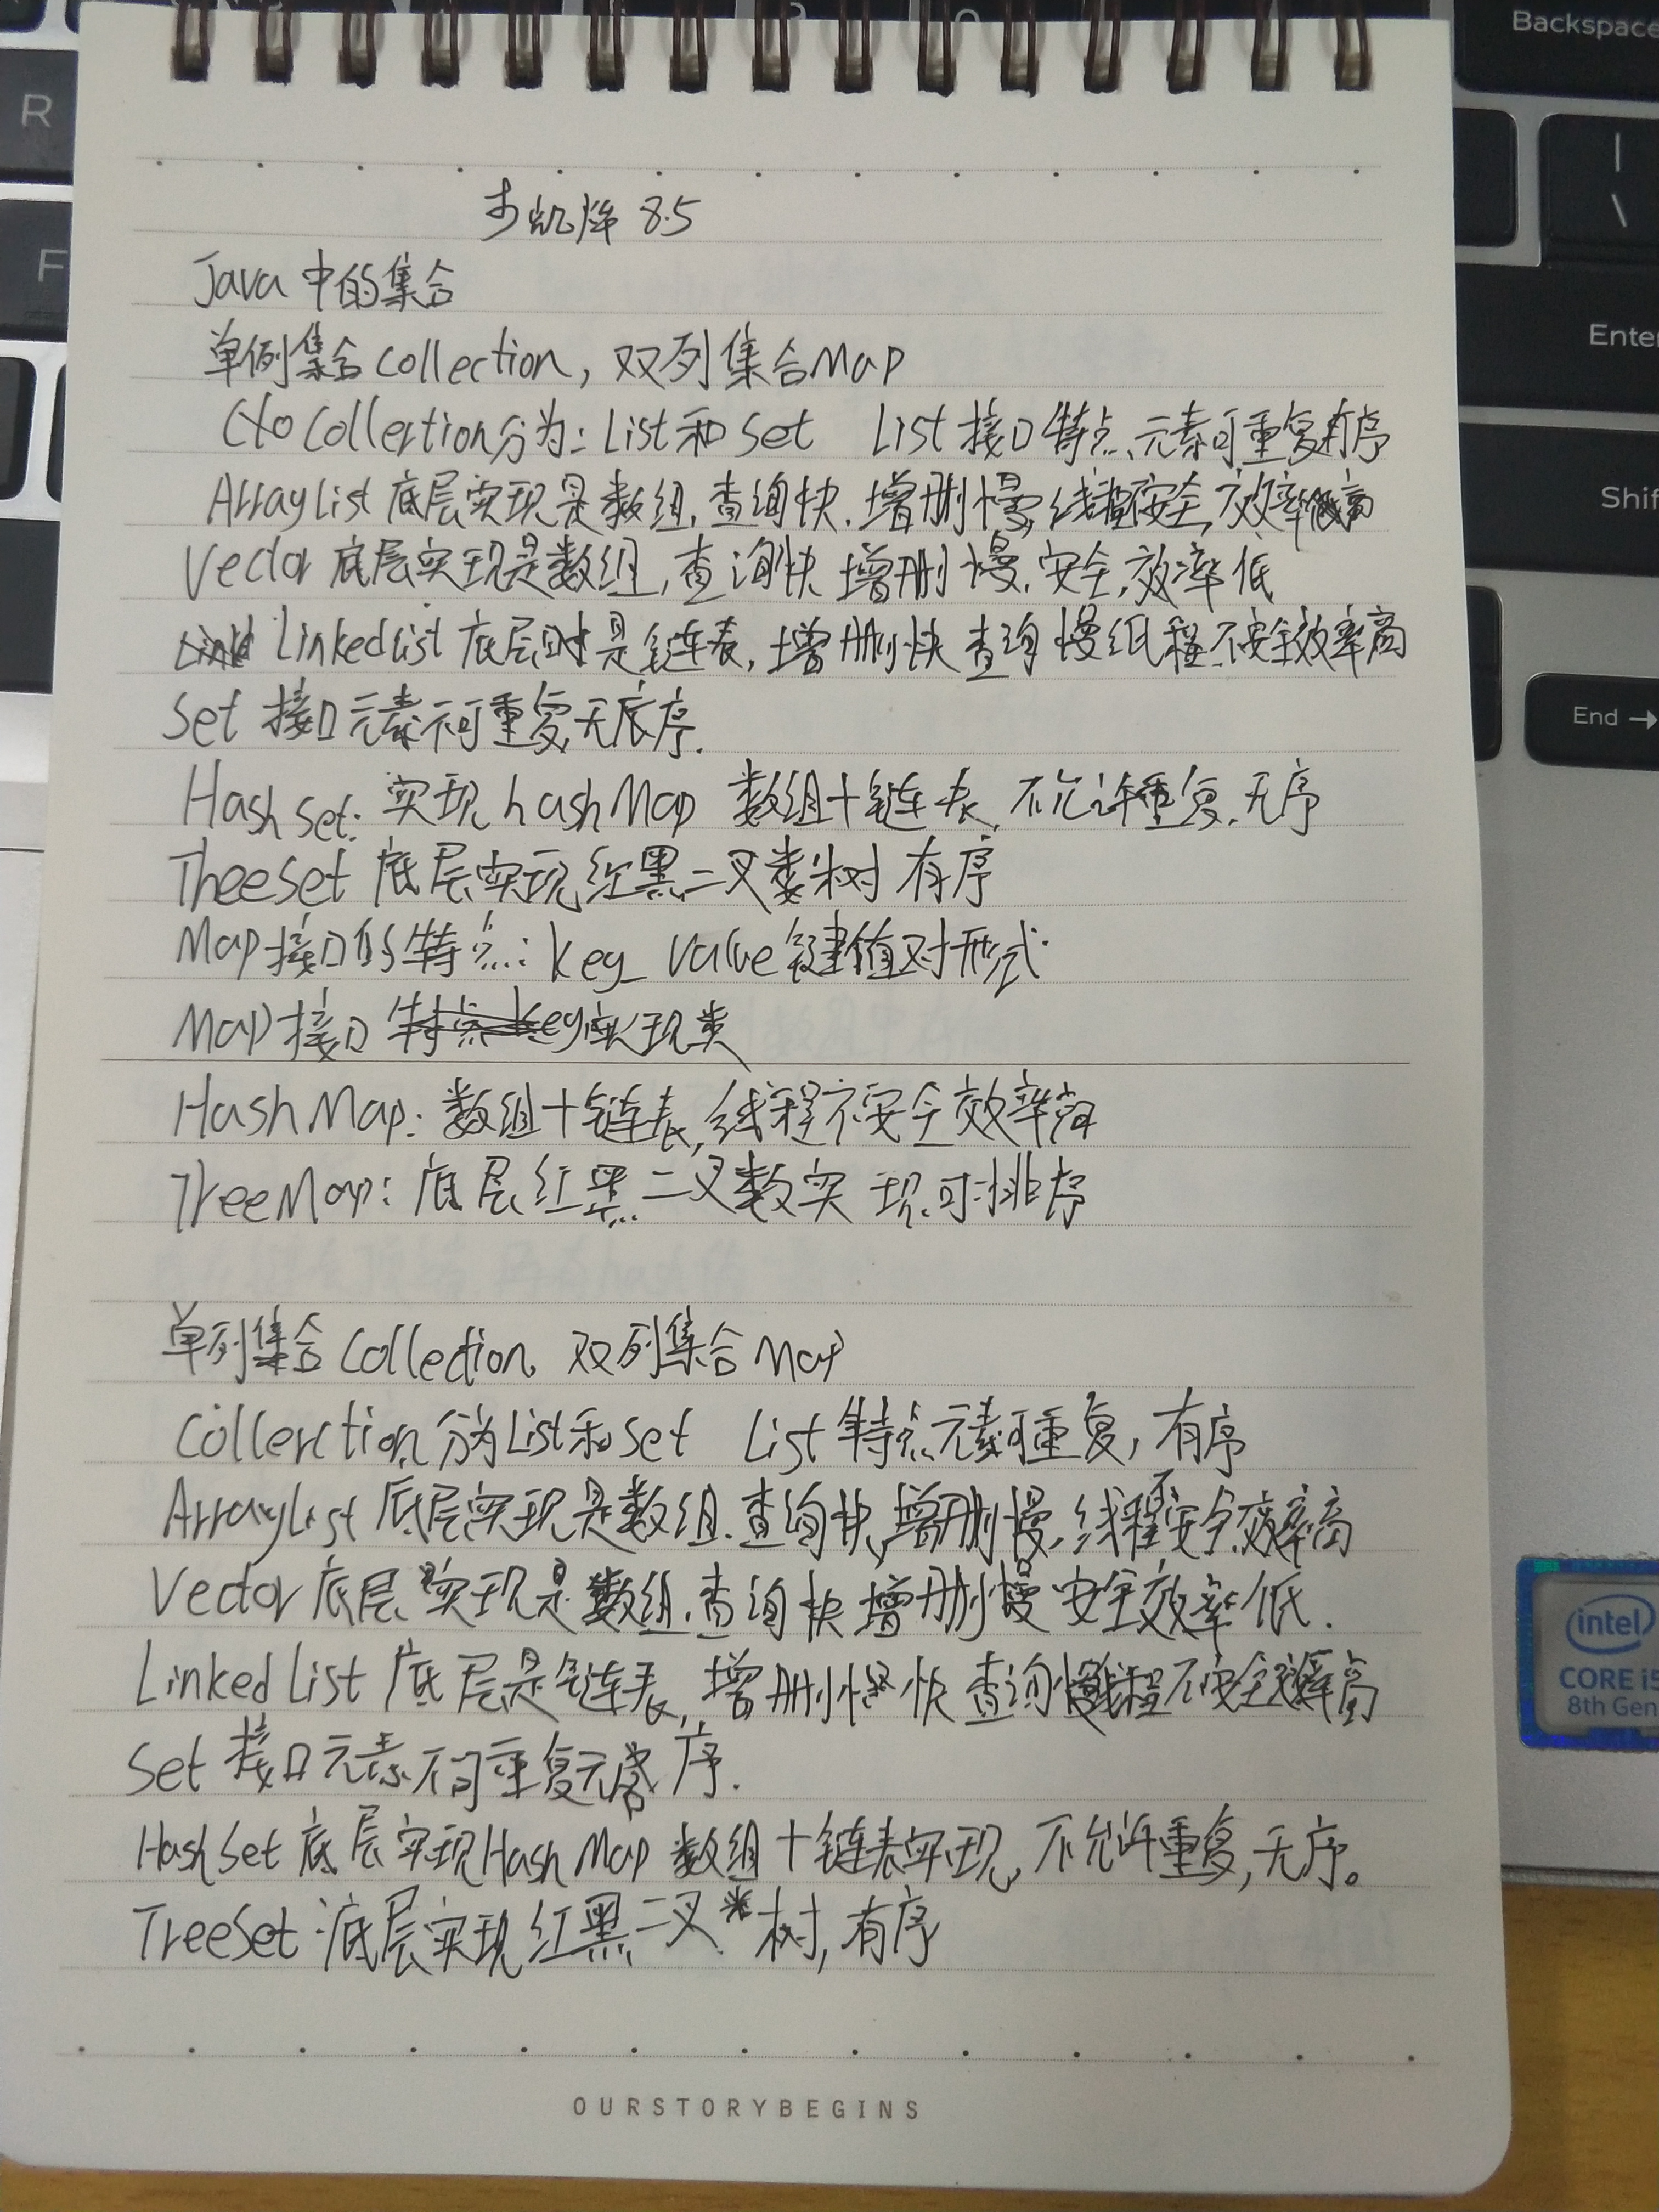 Backspace
R
|
\
F
Enter
Shif
End →
步凯烽 8.5
Java中的集合
单例集合collection, 双列集合Map
Collection分为: List和Set List接口特点、元素可重复有序
ArrayList 底层实现是数组, 查询快, 增删慢, 线程不安全, 效率高
Vector 底层实现是数组, 查询快 增删慢, 安全, 效率低
Linkedlist 底层是链表, 增删快 查询慢线程不安全效率高
Set 接口元素不可重复, 无序.
Hash Set: 实现 hashMap 数组+链表, 不允许重复, 无序
TheeSet 底层实现红黑二叉树 有序
Map接口的特点: key_ value键值对形式.
Map接口 实现类
HashMap: 数组+链表, 线程不安全效率高
TreeMap: 底层红黑二叉数实现, 可排序
单列集合Collection, 双列集合Map
Collerction分为List和Set List特点元素可重复, 有序
ArrayList 底层实现是数组, 查询快, 增删慢, 线程不安全, 效率高
Vector 底层实现是数组, 查询快 增删慢 安全效率低.
Linked List 底层是链表, 增删快 查询慢线程不安全效率高
Set 接口元素不可重复无序.
HashSet 底层实现HashMap 数组+链表实现, 不允许重复, 无序。
TreeSet :底层实现红黑二叉树, 有序
intel
CORE i5
8th Gen
OURSTORYBEGINS